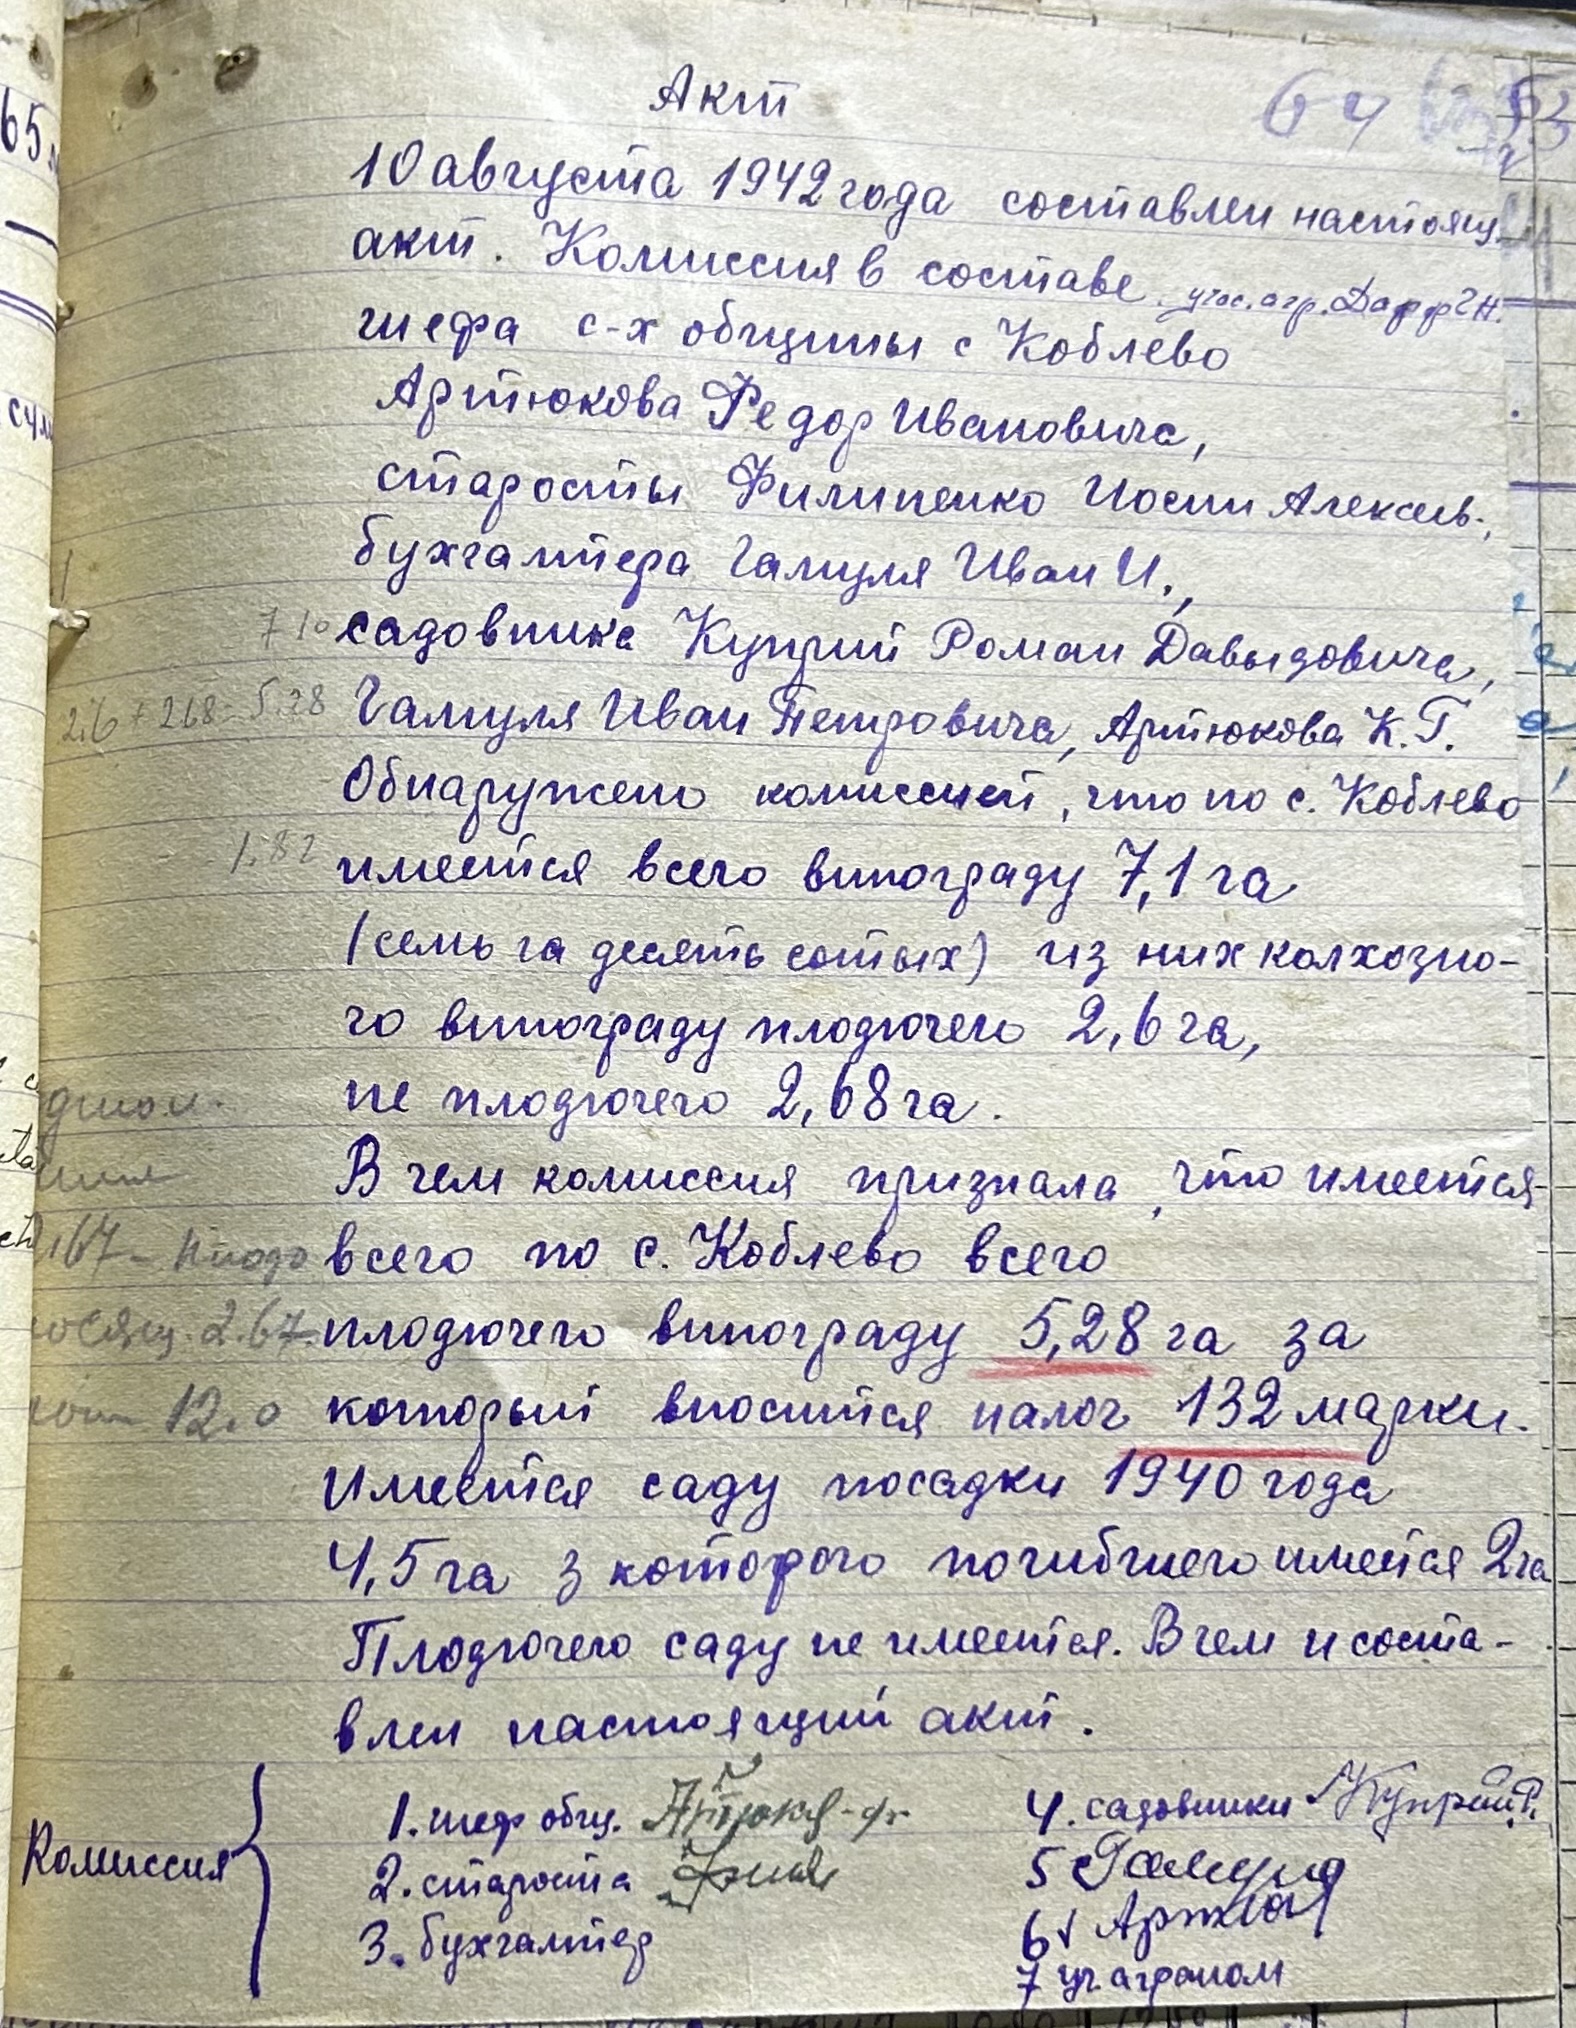 Акт
64
10 августа 1942 года составлен настоящ.
акт. Комиссия в составе учас. агр. Дарр
шефа с-х общины с Коблево
Артюкова Федор Ивановича,
старосты Филипенко Иосип Алексеев.,
бухгалтера Гамуля Иван И.,
садовника Куприй Роман Давыдовича,
Гамуля Иван Петровича, Артюкова К. Г.
Обнаружено комиссией, что по с. Коблево
имеется всего винограду 7,1 га
(семь га десять сотых) из них колхозно-
го винограду плодючего 2,6 га,
не плодючего 2,68 га.
В чем комиссия признала, что имеется
всего по с. Коблево всего
плодючего винограду 5,28 га за
который вносится налог 132 марки.
Имеется саду посадки 1940 года
4,5 га з которого погибшего имеется 2 га
Плодючего саду не имеется. В чем и соста-
влен настоящий акт.
7 10
2.6 + 2.68 = 5.28
1.82
67
2.67
12.0
Комиссия
1. шеф общ.
2. староста
3. бухгалтер
4. садовники Куприй Р.
5 Гамуля
6
7 уч. аграном